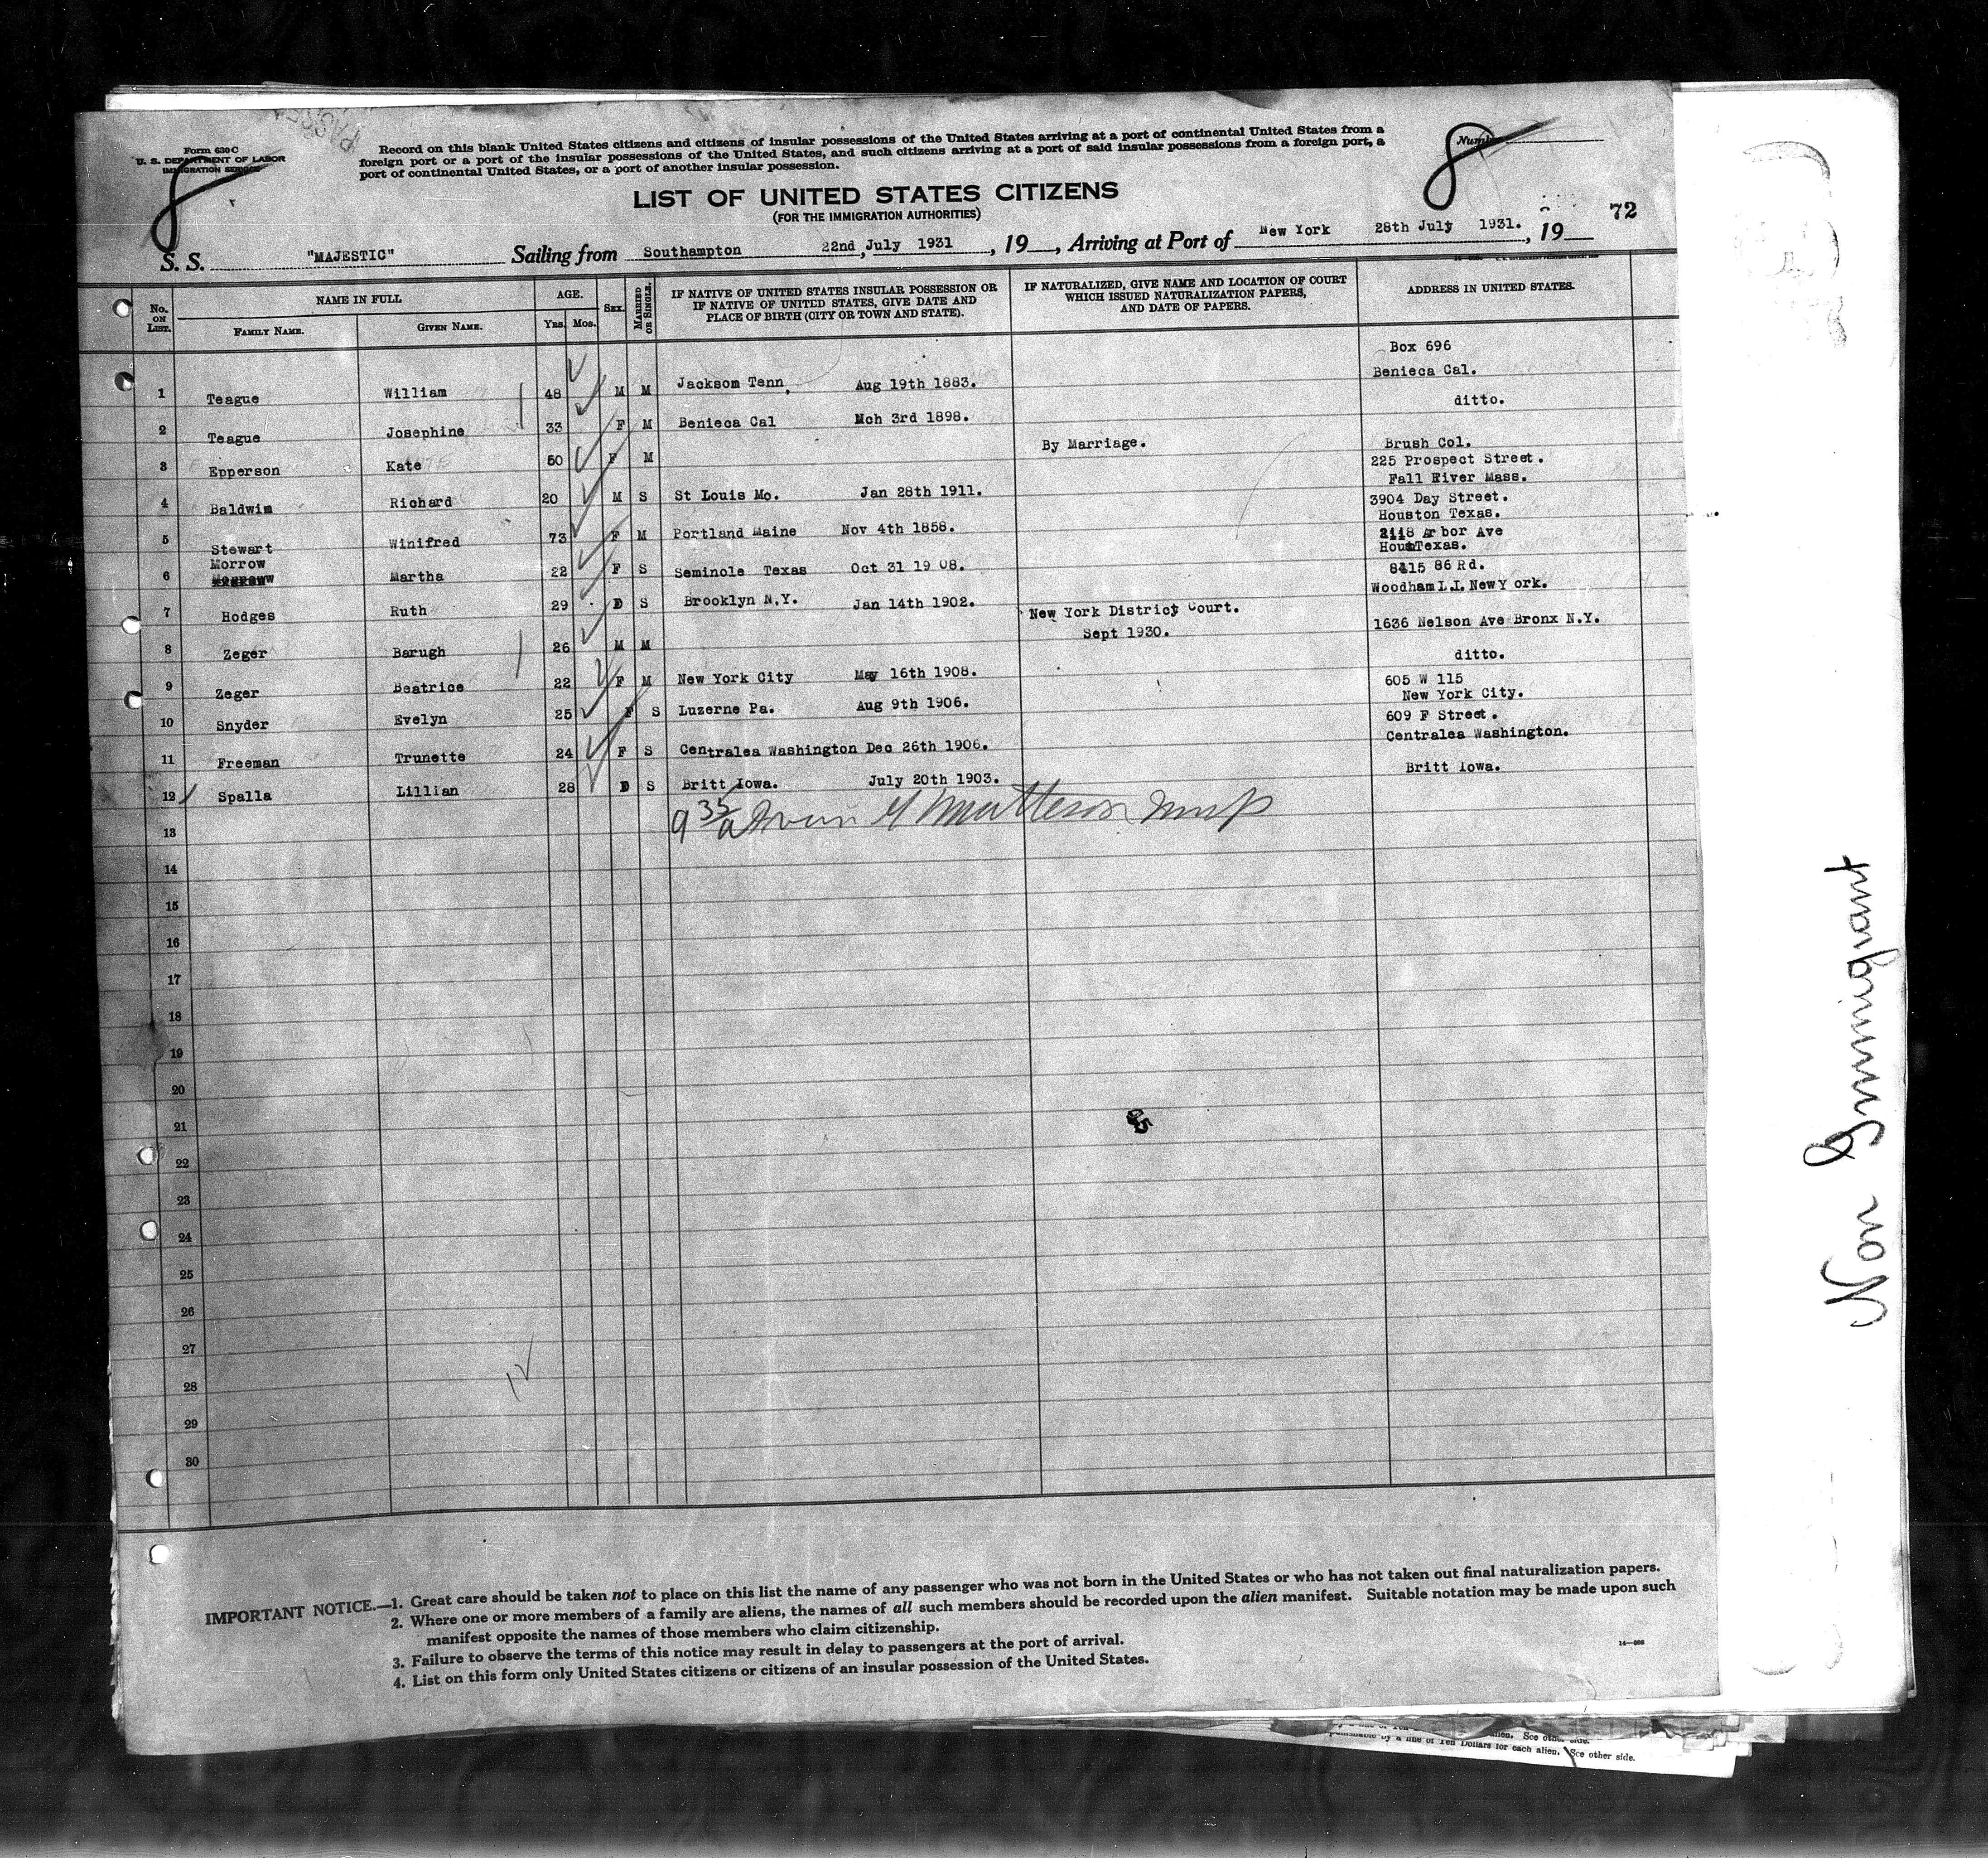 Form 630 C
U. S. DEPARTMENT OF LABOR
IMMIGRATION SERVICE
8
Record on this blank United States citizens and citizens of insular possessions of the United States arriving at a port of continental United States from a
foreign port or a port of the insular possessions of the United States, and such citizens arriving at a port of said insular possessions from a foreign port, a
port of continental United States, or a port of another insular possession.
8
LIST OF UNITED STATES CITIZENS
(FOR THE IMMIGRATION AUTHORITIES)
72
S. S. "MAJESTIC" Sailing from Southampton 22nd July 1931, 19__, Arriving at Port of New York 28th July 1931., 19__
No. ON LIST. NAME IN FULL AGE. SEX. MARRIED OR SINGLE. IF NATIVE OF UNITED STATES INSULAR POSSESSION OR IF NATIVE OF UNITED STATES, GIVE DATE AND PLACE OF BIRTH (CITY OR TOWN AND STATE). IF NATURALIZED, GIVE NAME AND LOCATION OF COURT WHICH ISSUED NATURALIZATION PAPERS, AND DATE OF PAPERS. ADDRESS IN UNITED STATES.
FAMILY NAME. GIVEN NAME. Yrs. Mos.
Box 696
Benieca Cal.
1 Teague William 48 M M Jacksom Tenn, Aug 19th 1883.
ditto.
2 Teague Josephine 33 F M Benieca Cal Mch 3rd 1898.
3 Epperson Kate 50 F M By Marriage. Brush Col.
225 Prospect Street.
Fall River Mass.
4 Baldwin Richard 20 M S St Louis Mo. Jan 28th 1911.
3904 Day Street.
Houston Texas.
5 Stewart Winifred 73 F M Portland Maine Nov 4th 1858.
2118 Ar bor Ave
Texas.
Morrow
6 Martha 22 F S Seminole Texas Oct 31 19 08.
8415 86 Rd.
Woodham L.I. NewY ork.
7 Hodges Ruth 29 D S Brooklyn N.Y. Jan 14th 1902.
New York District Court.
Sept 1930.
1636 Nelson Ave Bronx N.Y.
8 Zeger Barugh 26 M M
ditto.
9 Zeger Beatrice 22 F M New York City May 16th 1908.
605 W 115
New York City.
10 Snyder Evelyn 25 F S Luzerne Pa. Aug 9th 1906.
609 F Street.
Centralea Washington.
11 Freeman Trunette 24 F S Centralea Washington Dec 26th 1906.
Britt Iowa.
12 Spalla Lillian 28 D S Britt Iowa. July 20th 1903.
13
14
15
16
17
18
19
20
21
22
23
24
25
26
27
28
29
30
IMPORTANT NOTICE.—1. Great care should be taken not to place on this list the name of any passenger who was not born in the United States or who has not taken out final naturalization papers.
2. Where one or more members of a family are aliens, the names of all such members should be recorded upon the alien manifest. Suitable notation may be made upon such
manifest opposite the names of those members who claim citizenship.
3. Failure to observe the terms of this notice may result in delay to passengers at the port of arrival.
4. List on this form only United States citizens or citizens of an insular possession of the United States.
Non Immigrant
See other side.